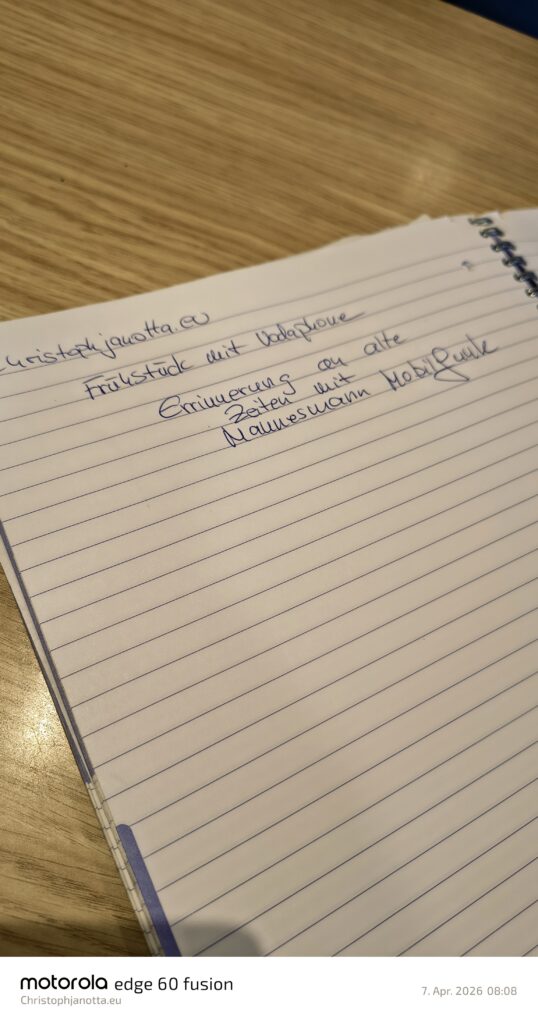 christophjanotta.eu
Frühstück mit Vodaphone
Errinnerung an alte
Zeiten mit
Mannesmann Mobilfunk
motorola edge 60 fusion
Christophjanotta.eu
7. Apr. 2026 08:08